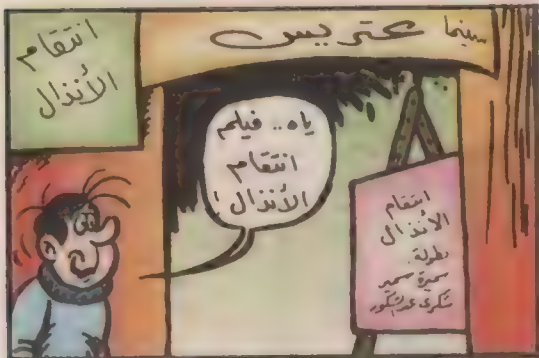 سينما عتريس
انتقام
الأنذال
ياه.. فيلم
انتقام
الأنذال!
انتقام
الأنذال
بطولة.
سميرة سمير
شكري عبد الشكور